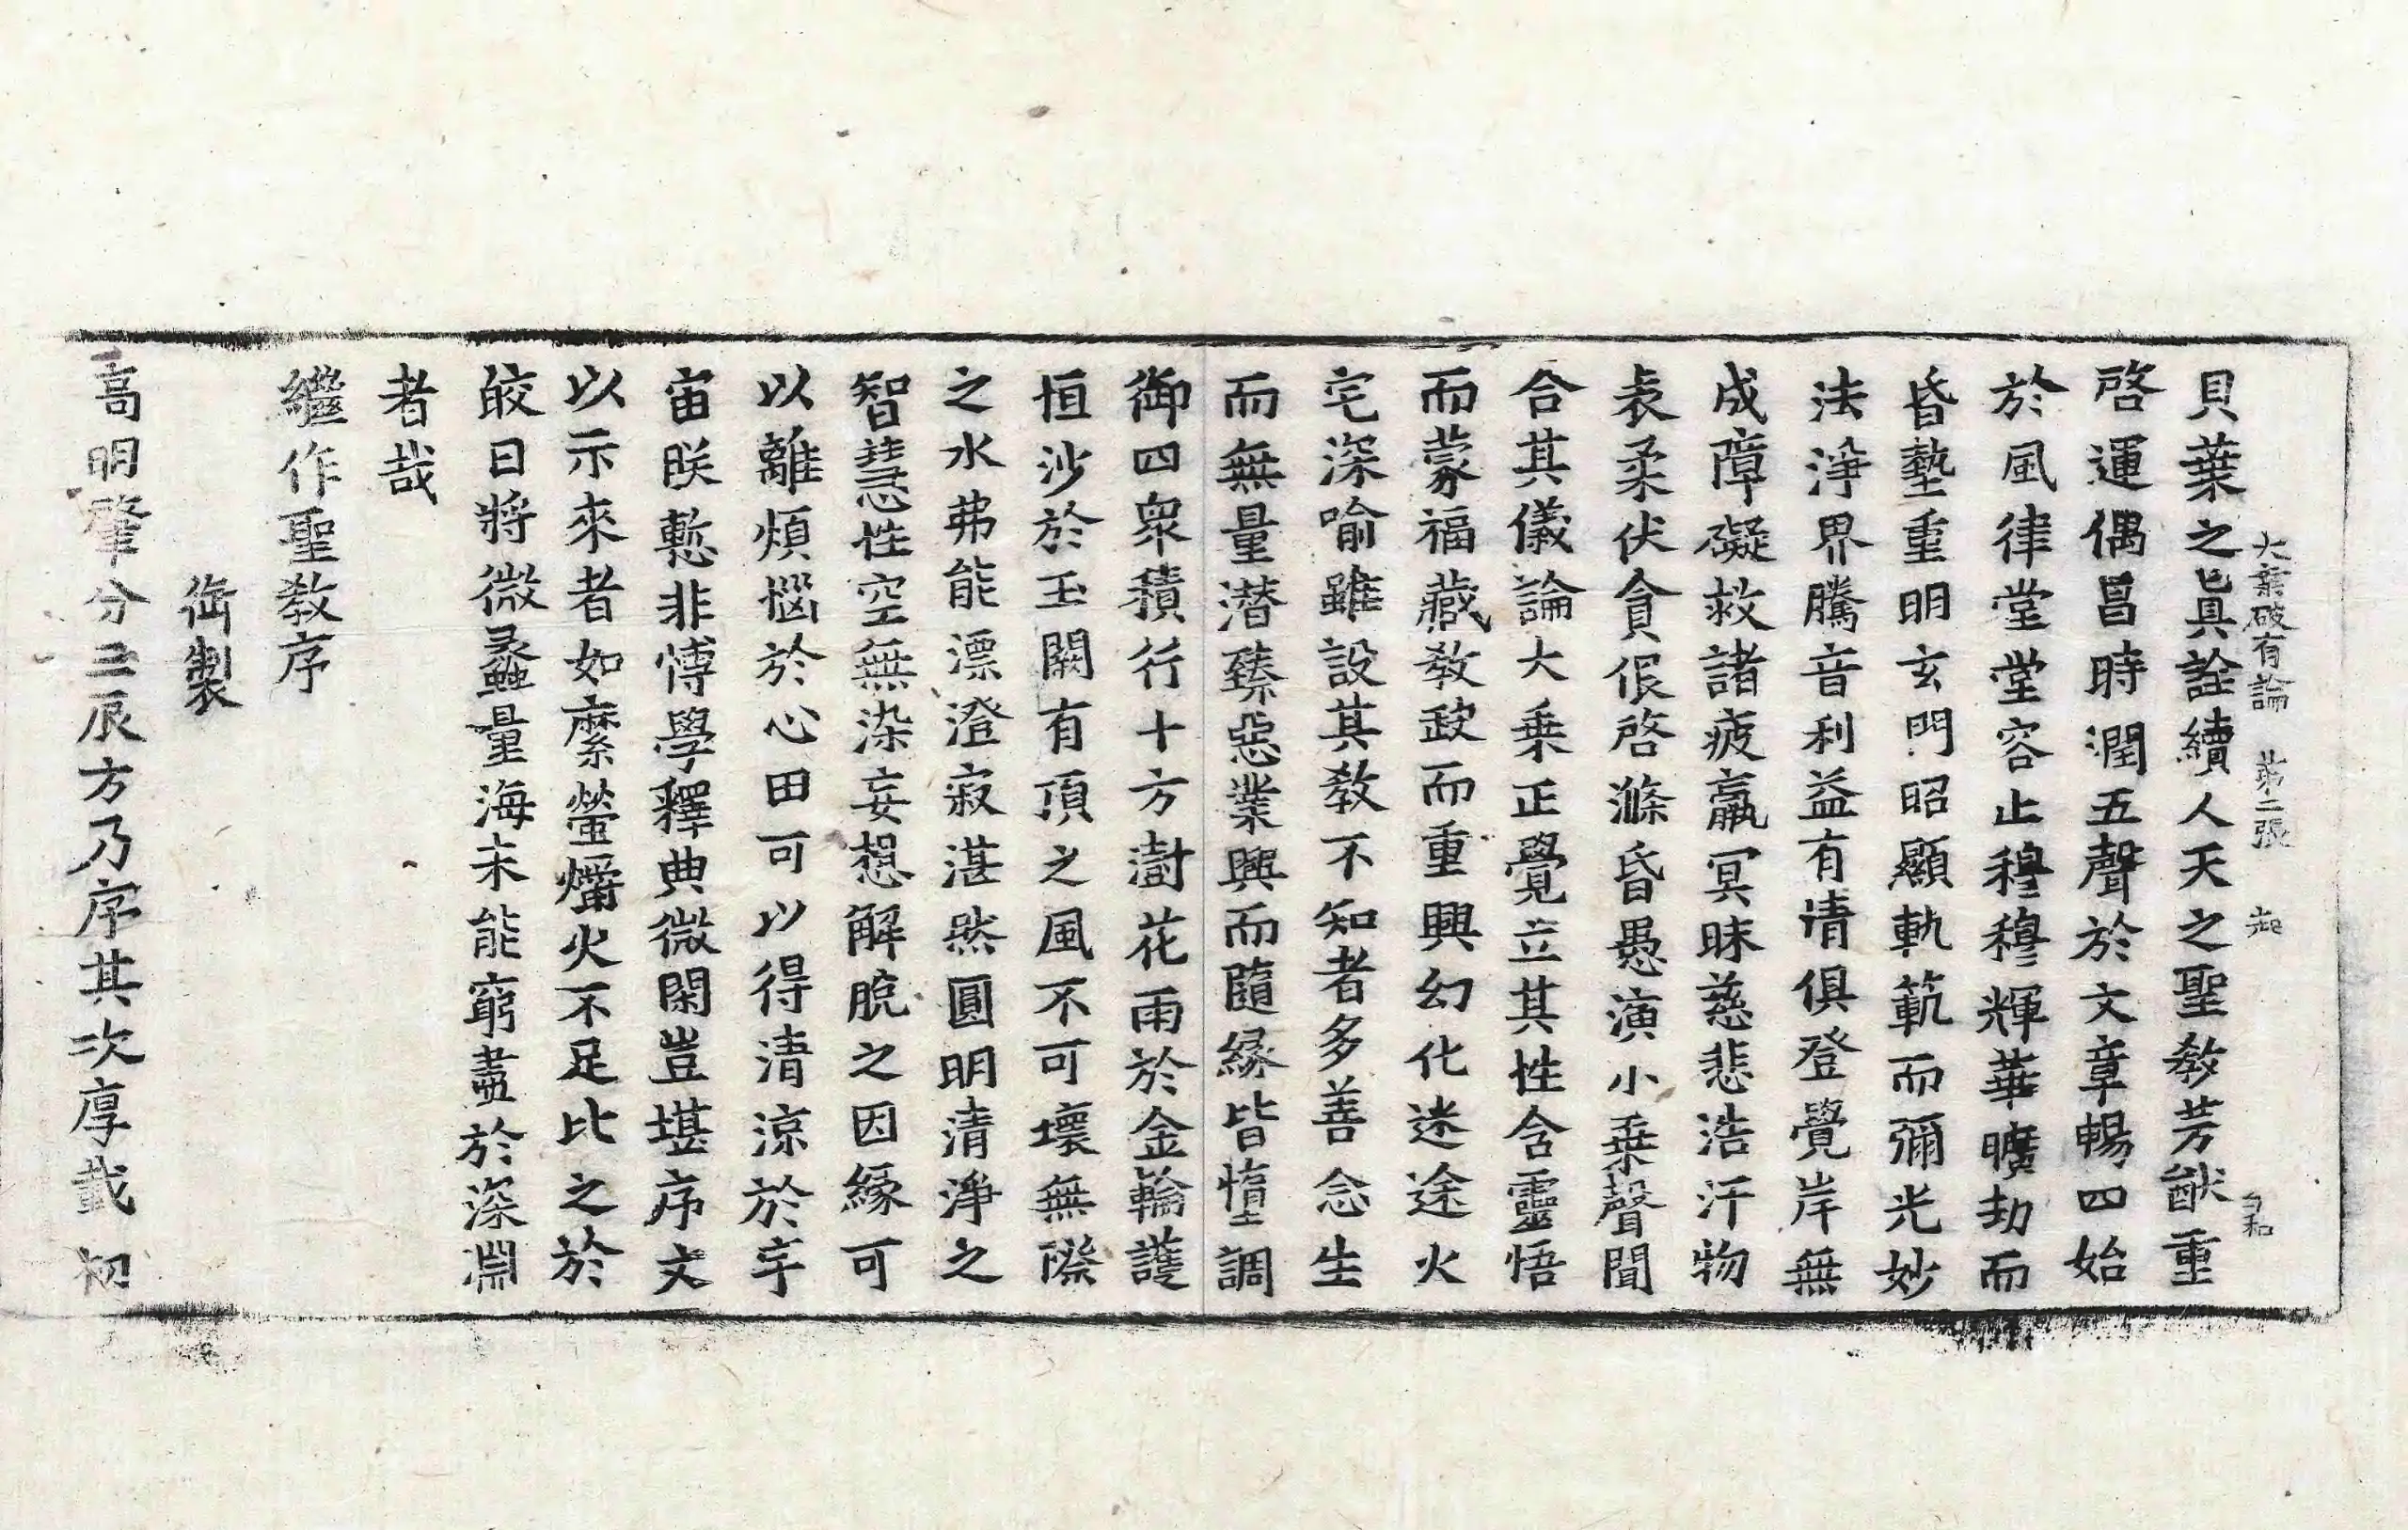 大乘破有論 第二張 知
貝葉之眞詮續人天之聖教芳猷重
啓運偶昌時潤五聲於文章暢四始
於風律堂堂容止穆穆輝華曠劫而
昏墊重明玄門昭顯軌範而彌光妙
法淨界騰音利益有情俱登覺岸無
成障礙救諸疲羸冥昧慈悲浩汗物
表柔伏貪佷啓滌昏愚演小乗聲聞
合其儀論大乗正覺立其性含靈悟
而蒙福藏教政而重興幻化迷途火
宅深喻雖設其教不知者多善念生
而無量潜臻惡業興而隨緣皆墮調
御四衆積行十方澍花雨於金輪護
恒沙於玉闕有頂之風不可壞無際
之水弗能漂澄寂湛然圓明清淨之
智慧性空無染妄想解脫之因緣可
以離煩惱於心田可以得清涼於宇
宙朕慙非博學釋典微閑豈堪序文
以示來者如縻螢爝火不足比之於
皎日將微蠡量海未能窮盡於深淵
者哉
繼作聖教序
御製
高明肇分三辰方乃序其次厚載初